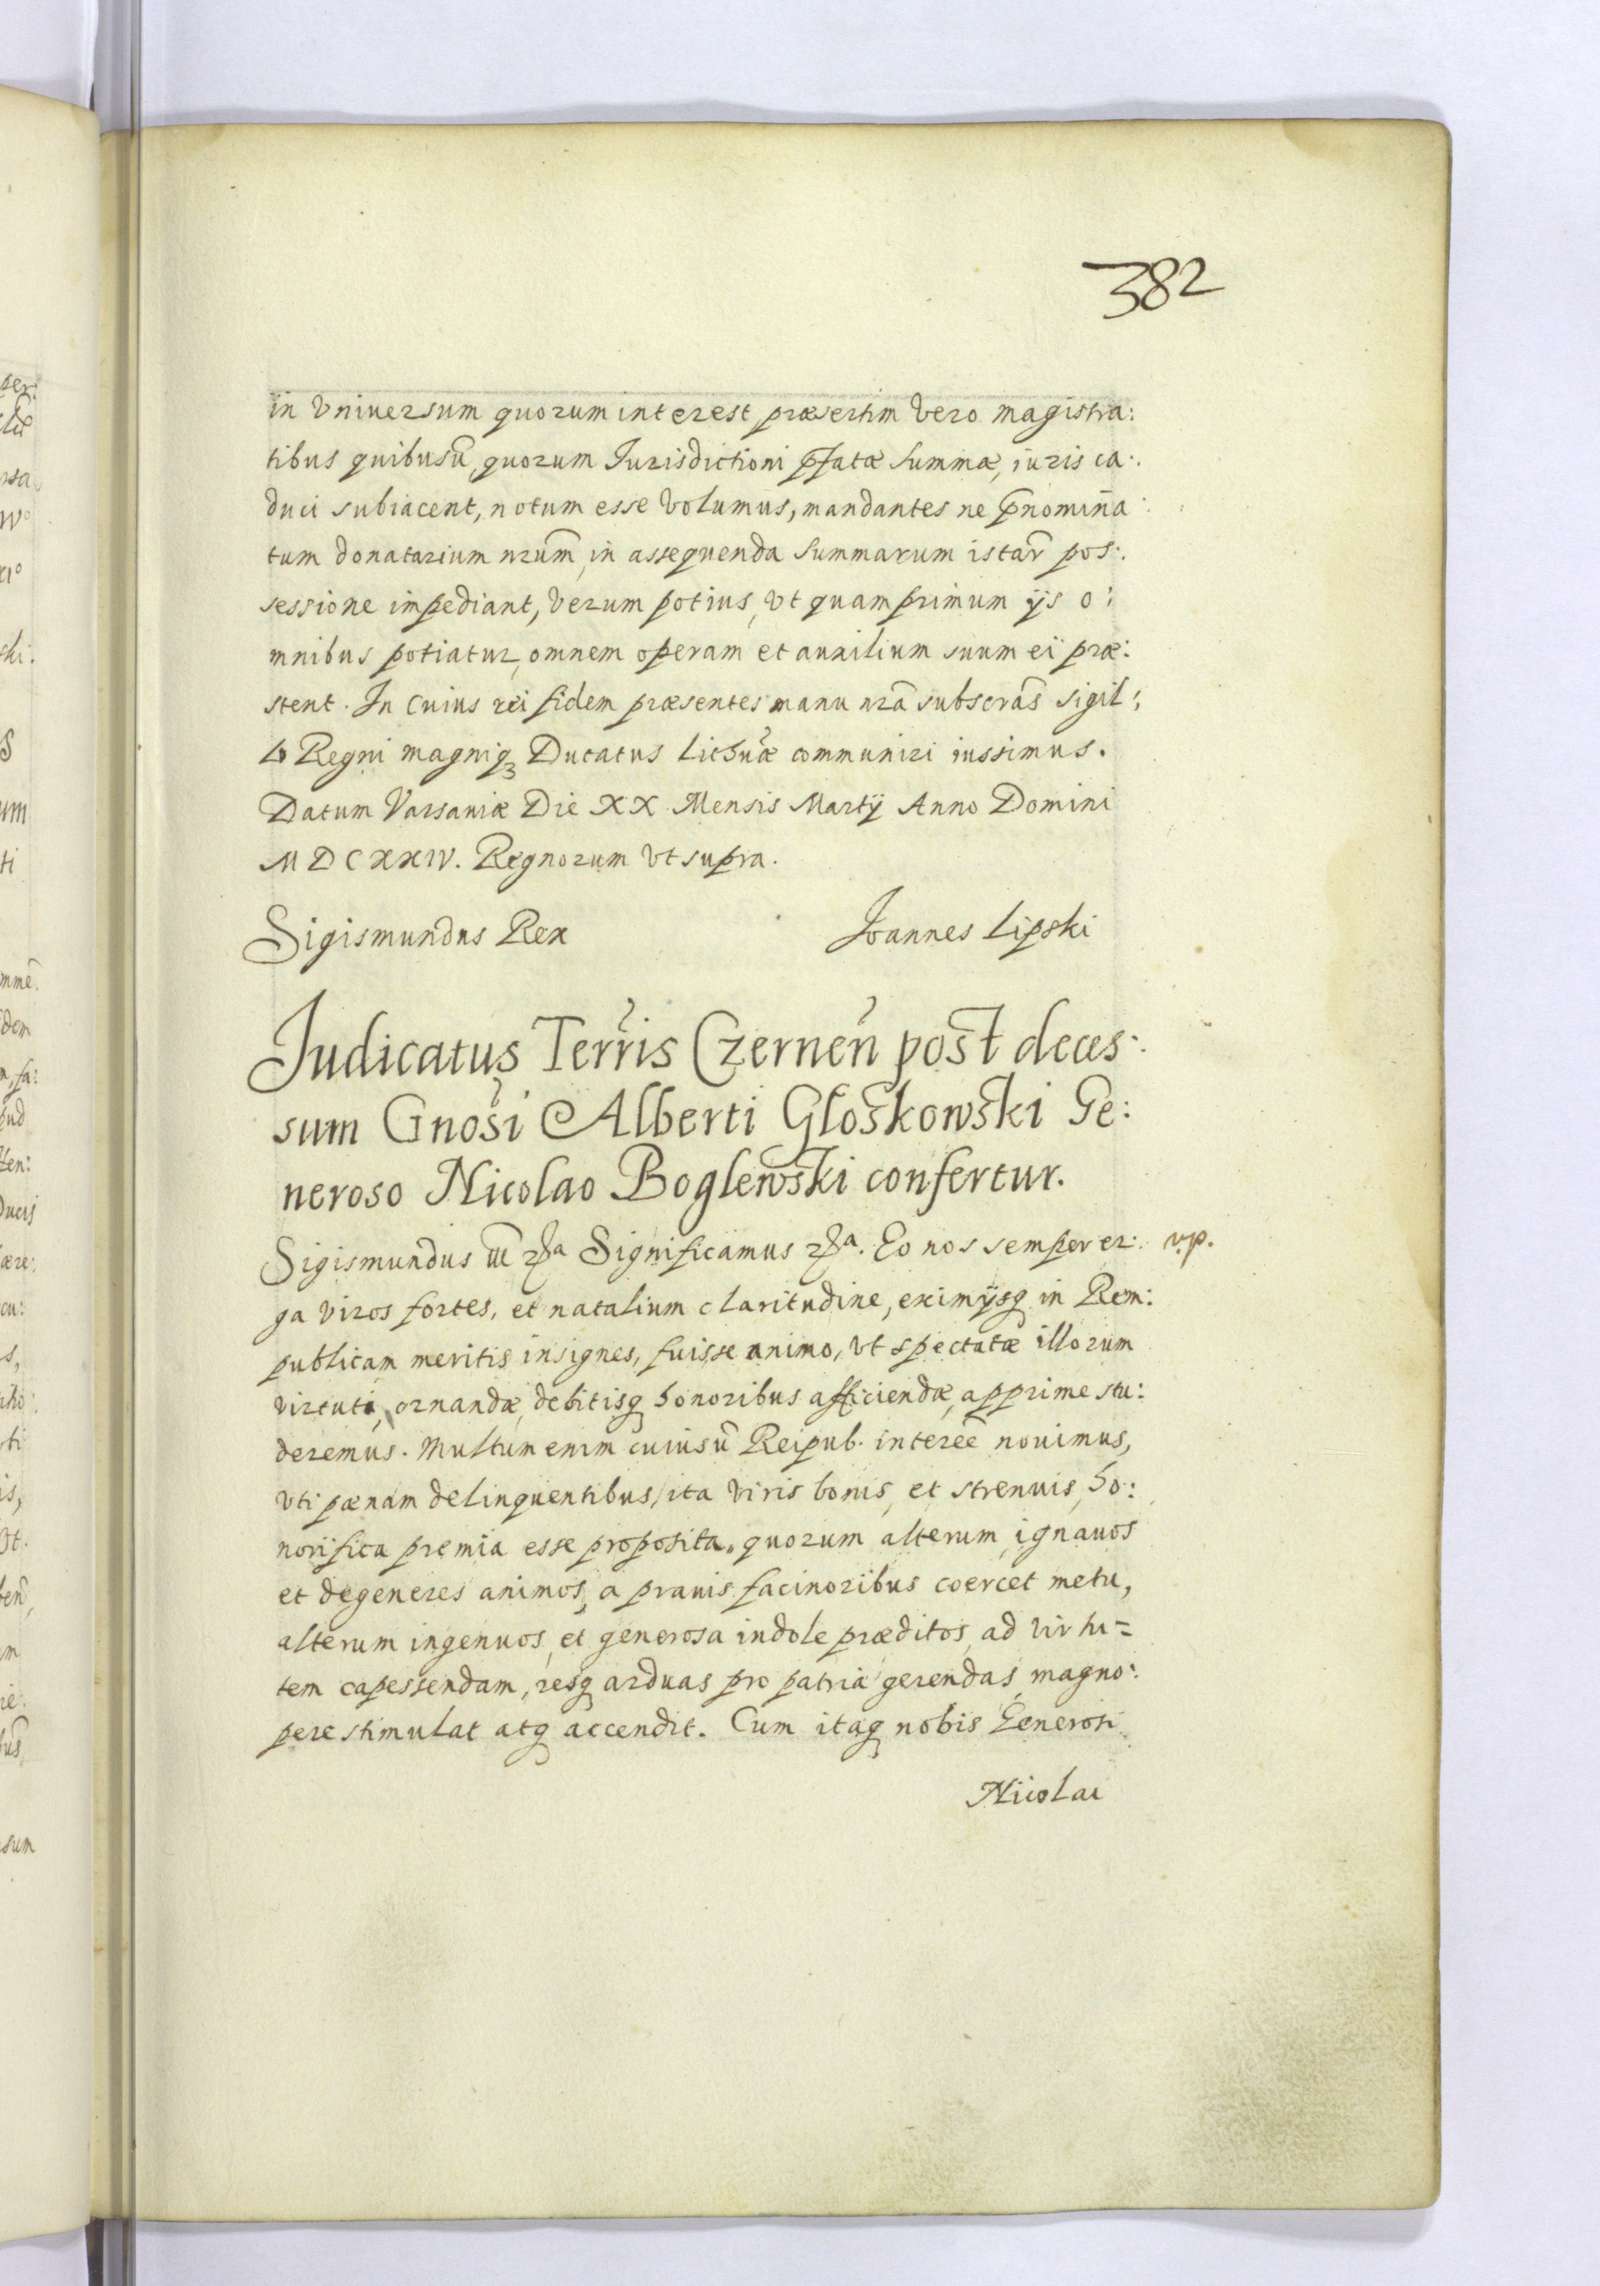 382
in Vniuersum quorum interest præsertim Vero magistra:
tibus quibusũ, quorum Jurisdictioni p̃fatæ Summæ, iuris ca:
duci subiacent, notum esse Volumus, mandantes ne p̃nomiña
tum donatarium nrũm, in assequenda Summarum istar̃ pos:
sessione impediant, Verum potius, Vt quamprimum ijs o:
mnibus potiatur, omnem operam et auxilium suum ei præ:
stent. In Cuius rei fidem præsentes manu nrã subscrãs sigil:
lo Regni magniq₃ Ducatus Lithuæ communiri iussimus.
Datum Varsauiæ Die XX Mensis Martij Anno Domini
MDCXXIV. Regnorum Vt supra.
Sigismundus Rex Joannes Lipski
Judicatus Terr̃is Czerneñ post deces:
sum Gnosi Alberti Gloskowski Ge:
neroso Nicolao Boglewski confertur.
Sigismundus Significamus Eo nos semper er: v.p.
ga Viros fortes, et natalium claritudine, eximijsq in Rem:
publicam meritis insignes, fuisse animo, Vt spectatæ illorum
virtuti, ornandæ, debitisq honoribus afficiendæ, apprime stu:
deremus. Multum enim cuiusũ Reipub. intereẽ nouimus,
Vti pænam delinquentibus, ita Viris bonis, et strenuis, ho:
norifica premia esse proposita, quorum alterum, ignauos
et degeneres animos, a prauis facinoribus coercet metu,
alterum ingenuos, et generosa indole præditos, ad Virtu=
tem capessendam, resq arduas pro patria gerendas, magno:
pere stimulat atq accendit. Cum itaq nobis Generosi
Nicolai